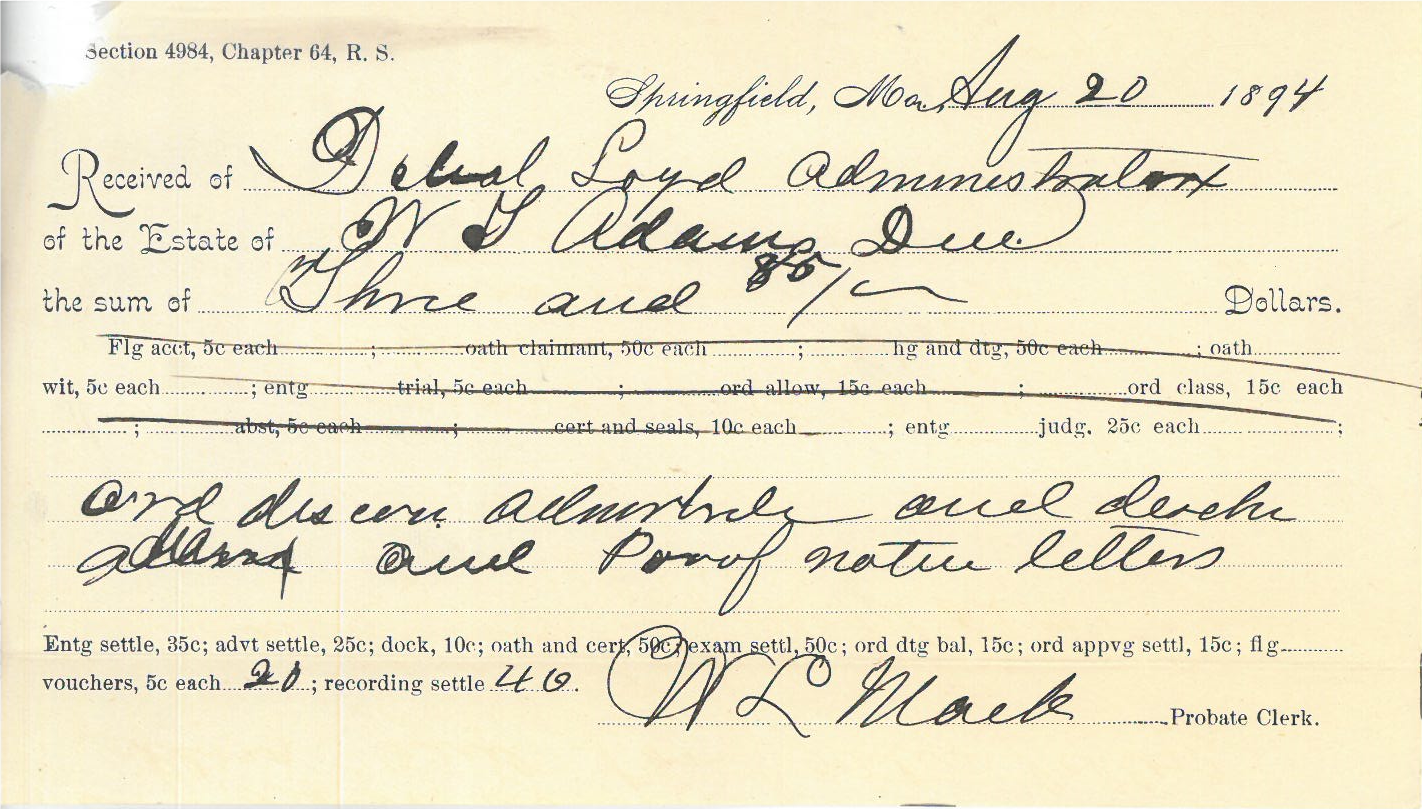 Section 4984, Chapter 64, R. S.
Springfield, Mo., Aug 20 1894
Received of Loyd Administrator
of the Estate of W S Adams Dec
the sum of Three and 85/ Dollars.
Flg acct, 5c each ; oath claimant, 50c each ; hg and dtg, 50c each ; oath
wit, 5c each ; entg trial, 5c each ; ord allow, 15c each ; ord class, 15c each
; abst, 5c each ; cert and seals, 10c each ; entg judg. 25c each ;
ord and
and Proof letters
Entg settle, 35c; advt settle, 25c; dock, 10c; oath and cert, 50c; exam settl, 50c; ord dtg bal, 15c; ord appvg settl, 15c; flg
vouchers, 5c each 20 ; recording settle 40.
W L Mack Probate Clerk.